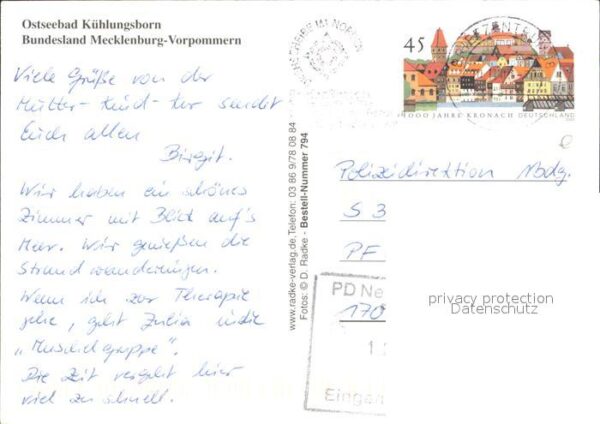 Ostseebad Kühlungsborn
Bundesland Mecklenburg-Vorpommern
Viele Grüße von der
Mutter-Kind-Kur sendet
Euch allen
Birgit.
Wir haben ein schönes
Zimmer mit Blick auf's
Meer. Wir genießen die
Strandwanderungen.
Wenn ich zur Therapie
gehe, geht Julia in die
„Muschelgruppe".
Die Zeit vergeht hier
viel zu schnell.
www.radke-verlag.de, Telefon: 03 86 9/78 08 84
Fotos: © D. Radke - Bestell-Nummer 794
45
1000 JAHRE KRONACH DEUTSCHLAND
Polizeidirektion Nbdg.
S 3
PF
PD Ne
170
1.
Einge
privacy protection
Datenschutz